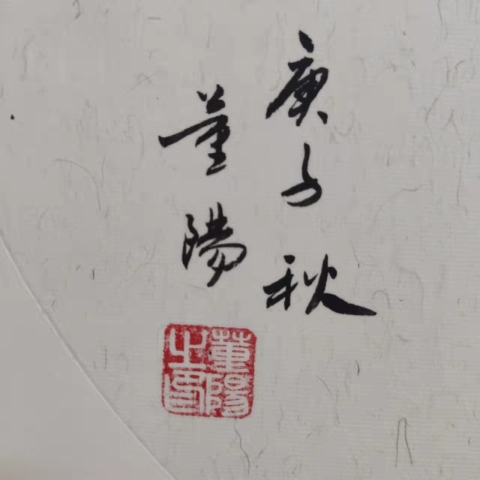 庚子秋
董陽
董陽之印